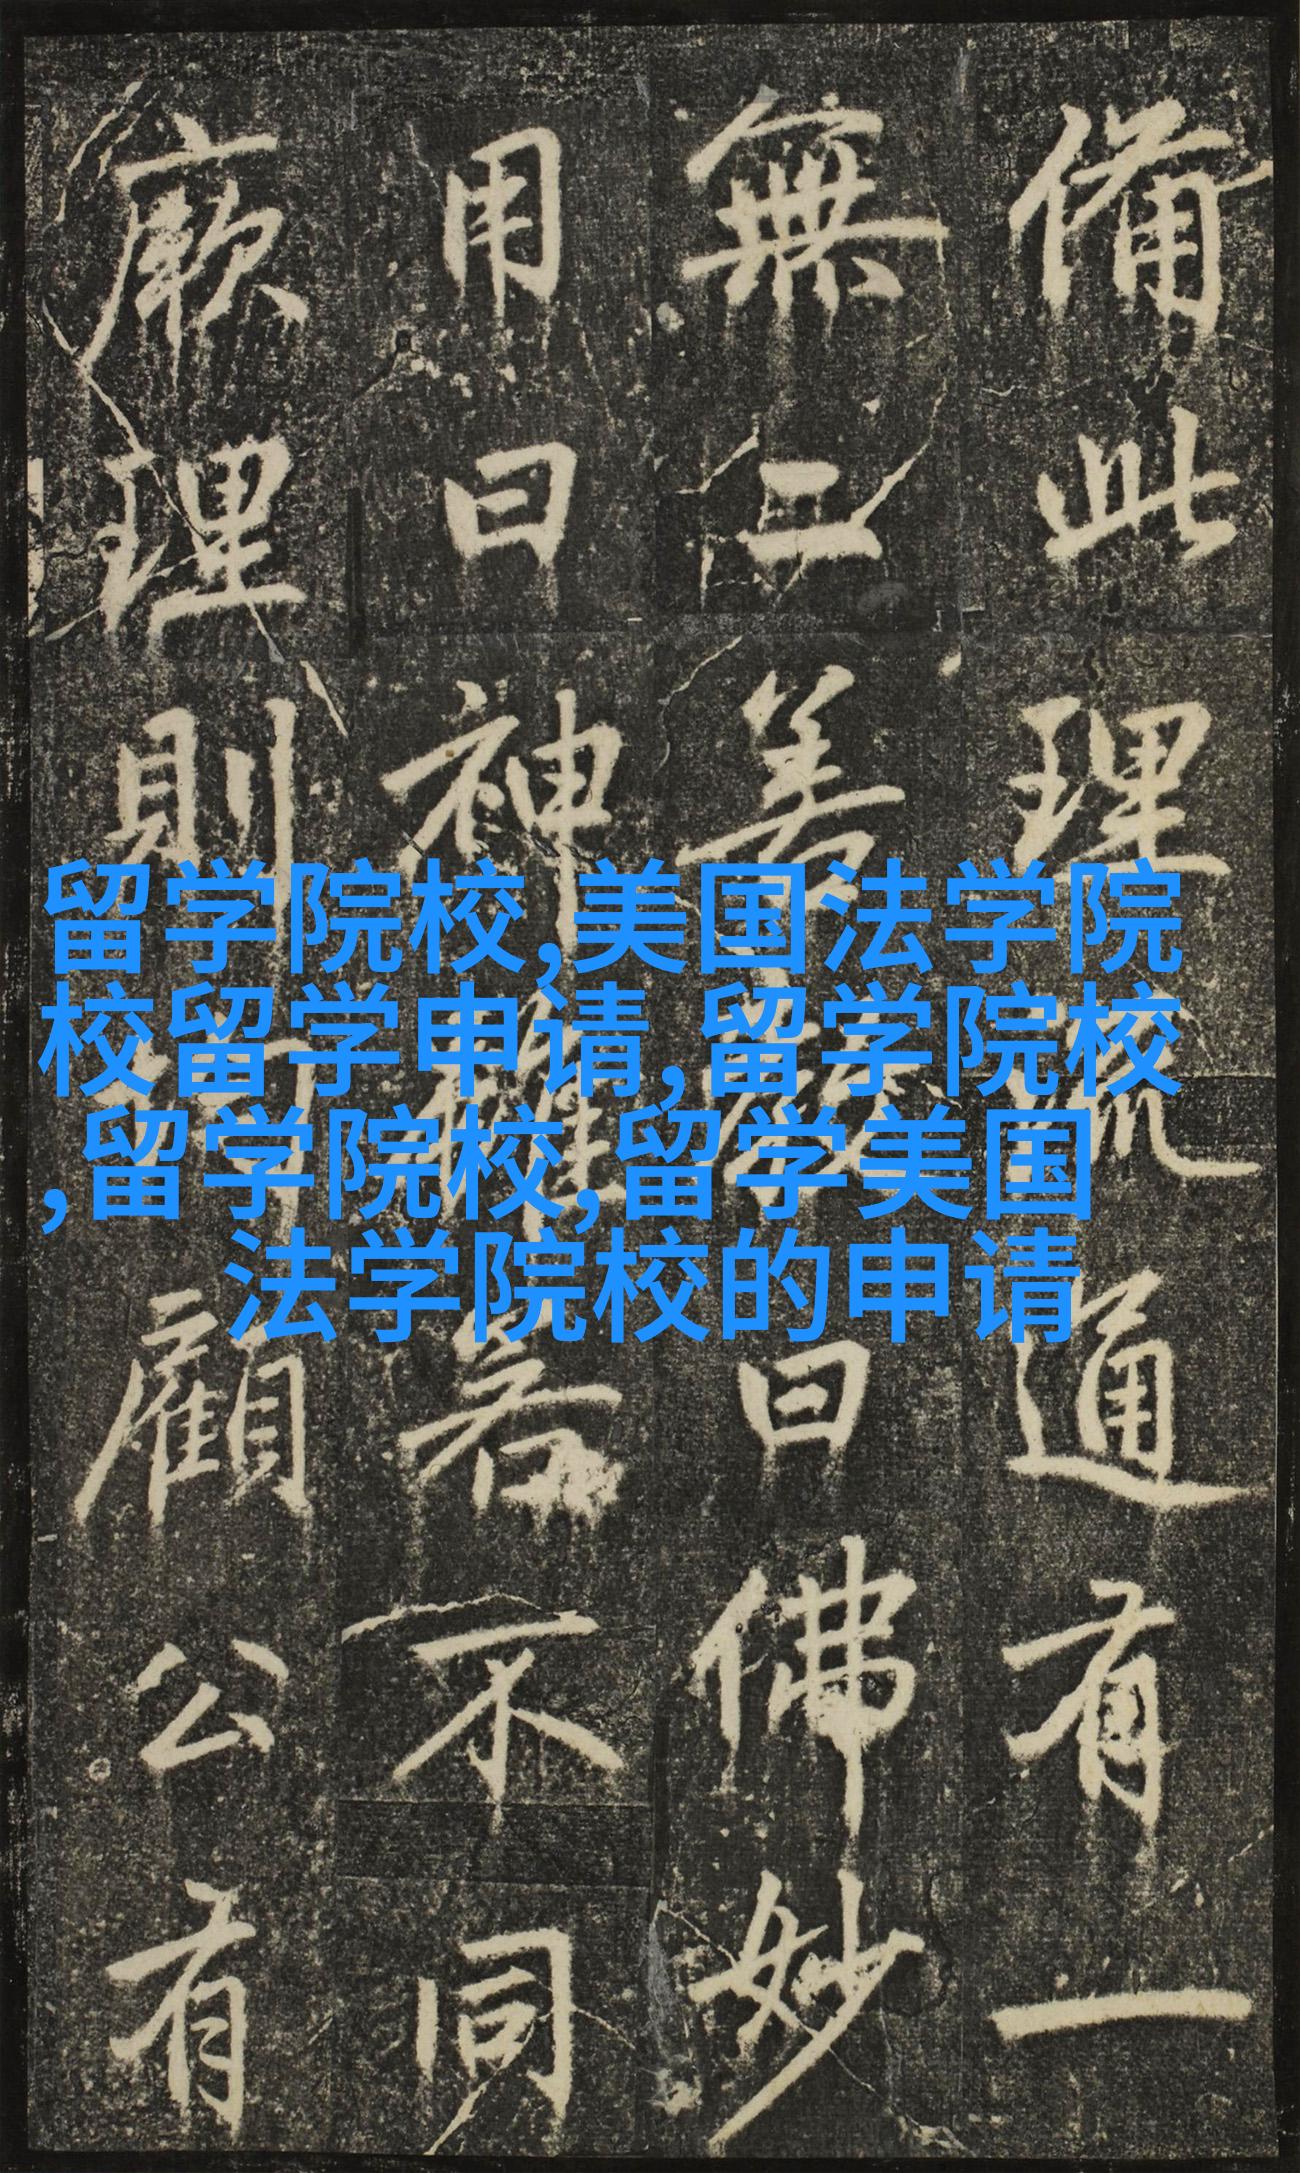 留学院校,美国法学院
校留学申请,留学院校
,留学院校,留学美国
法学院校的申请
備此理通有一
無二曰佛妙
用曰神若不同
厥理則顧公有